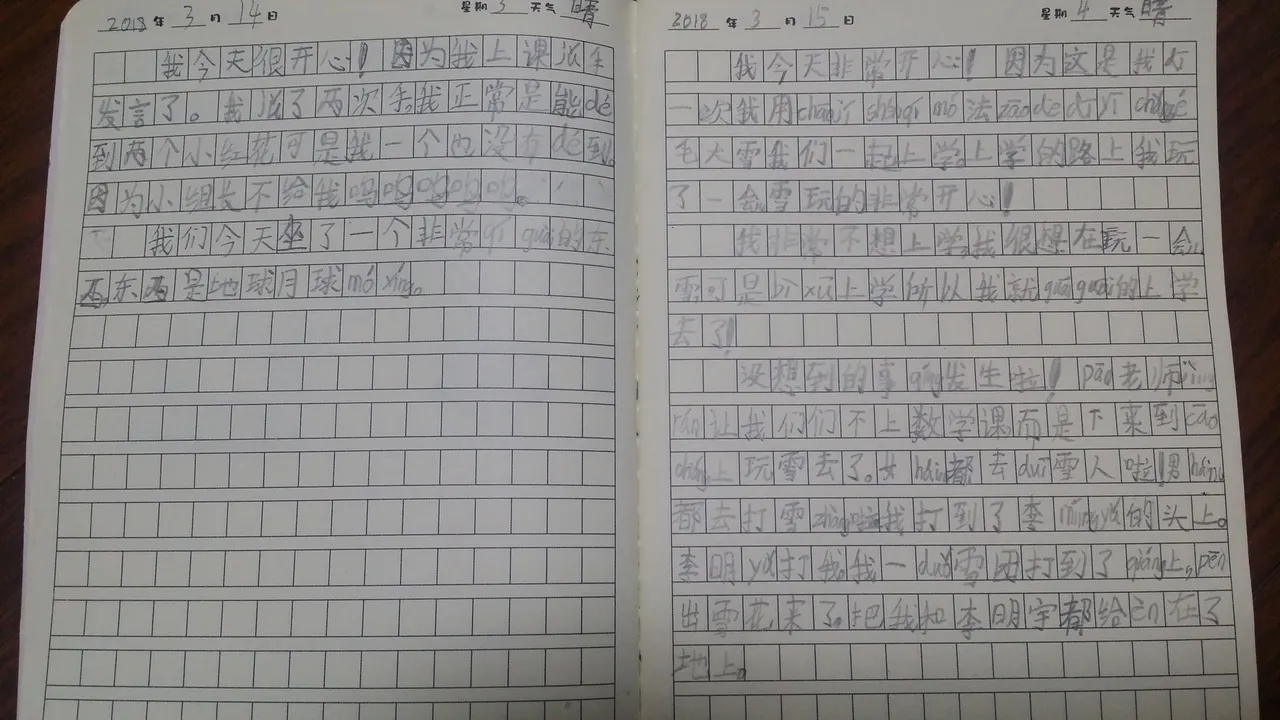 2018 年 3 月 14 日 星期 3 天气 晴
我今天很开心！因为我上课没手
发言了。我说了两次手我正常是能dé
到两个小红花可是我一个也没有dé到。
因为小组长不给我呜呜呜呜呜。
我们今天坐了一个非常qí guài的东
西。东西是地球月球mó xíng。
2018 年 3 月 15 日 星期 4 天气 晴
我今天非常开心！因为这是我
一次我用 法 de dì yī
毛大雪我们一起上学。上学的路上我玩
了一会雪玩的非常开心！
我非常不想上学我很想在玩一会
雪可是bì xū上学所以我就guāi guāi的上学
去了！
没想到的事qíng发生啦！pāo老师jìng
rán让我们们不上数学课而是下来到cāo
chǎng上玩雪去了。女hái都去duī雪人啦！男hái
都去打雪zhàng啦我打到了李míng yǔ的头上。
李明yǔ打我我一duǒ雪团打到了qiáng上。pēn
出雪花来了。把我和李明宇都给èn在了
地上。